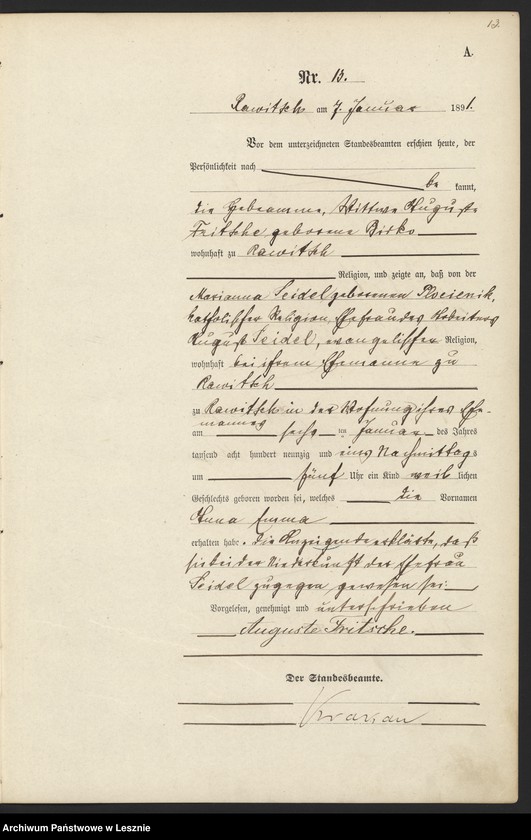 12
A.
Nr. 13.
Rawitsch am 7. Januar 1891.
Vor dem unterzeichneten Standesbeamten erschien heute, der
Persönlichkeit nach
be kannt,
die Hebeamme, Wittwe Auguste
Fritsche geborene Birko
wohnhaft zu Rawitsch
Religion, und zeigte an, daß von der
Marianna Seidel geborenen Plocienik,
katholischer Religion, Ehefrau des Arbeiters
August Seidel, evangelischer Religion,
wohnhaft bei ihrem Ehemanne zu
Rawitsch
zu Rawitsch in der Wohnung ihres Ehe-
mannes
am sechs ten Januar des Jahres
tausend acht hundert neunzig und eins Nachmittags
um fünf Uhr ein Kind weib lichen
Geschlechts geboren worden sei, welches die Vornamen
Anna Emma
erhalten habe. Die Anzeigende erklärte, daß
sie bei der Niederkunft der Ehefrau
Seidel zugegen gewesen sei.
Vorgelesen, genehmigt und unterschrieben
Auguste Fritsche.
Der Standesbeamte.
Archiwum Państwowe w Lesznie